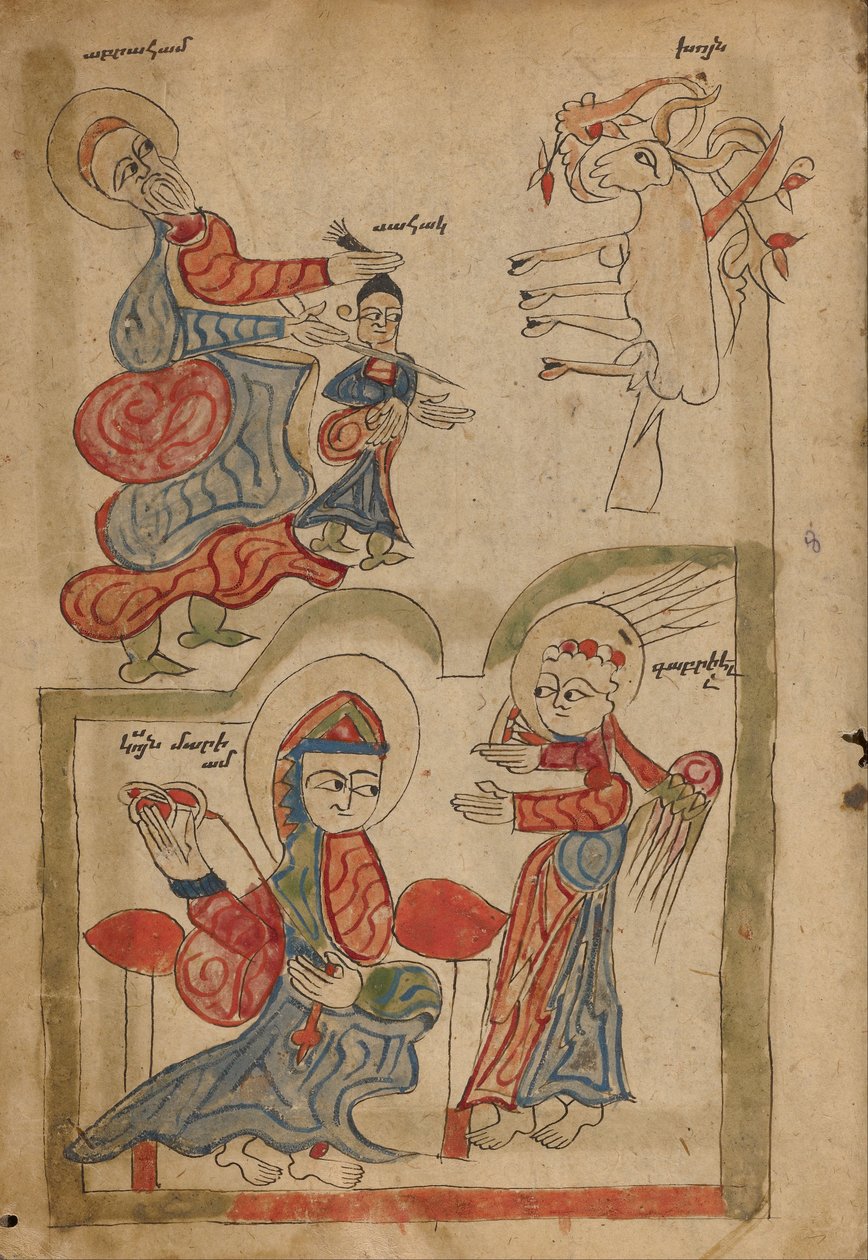 աբրահամ
խոյն
սահակ
գաբրիել
կոյսն մարի
ամ